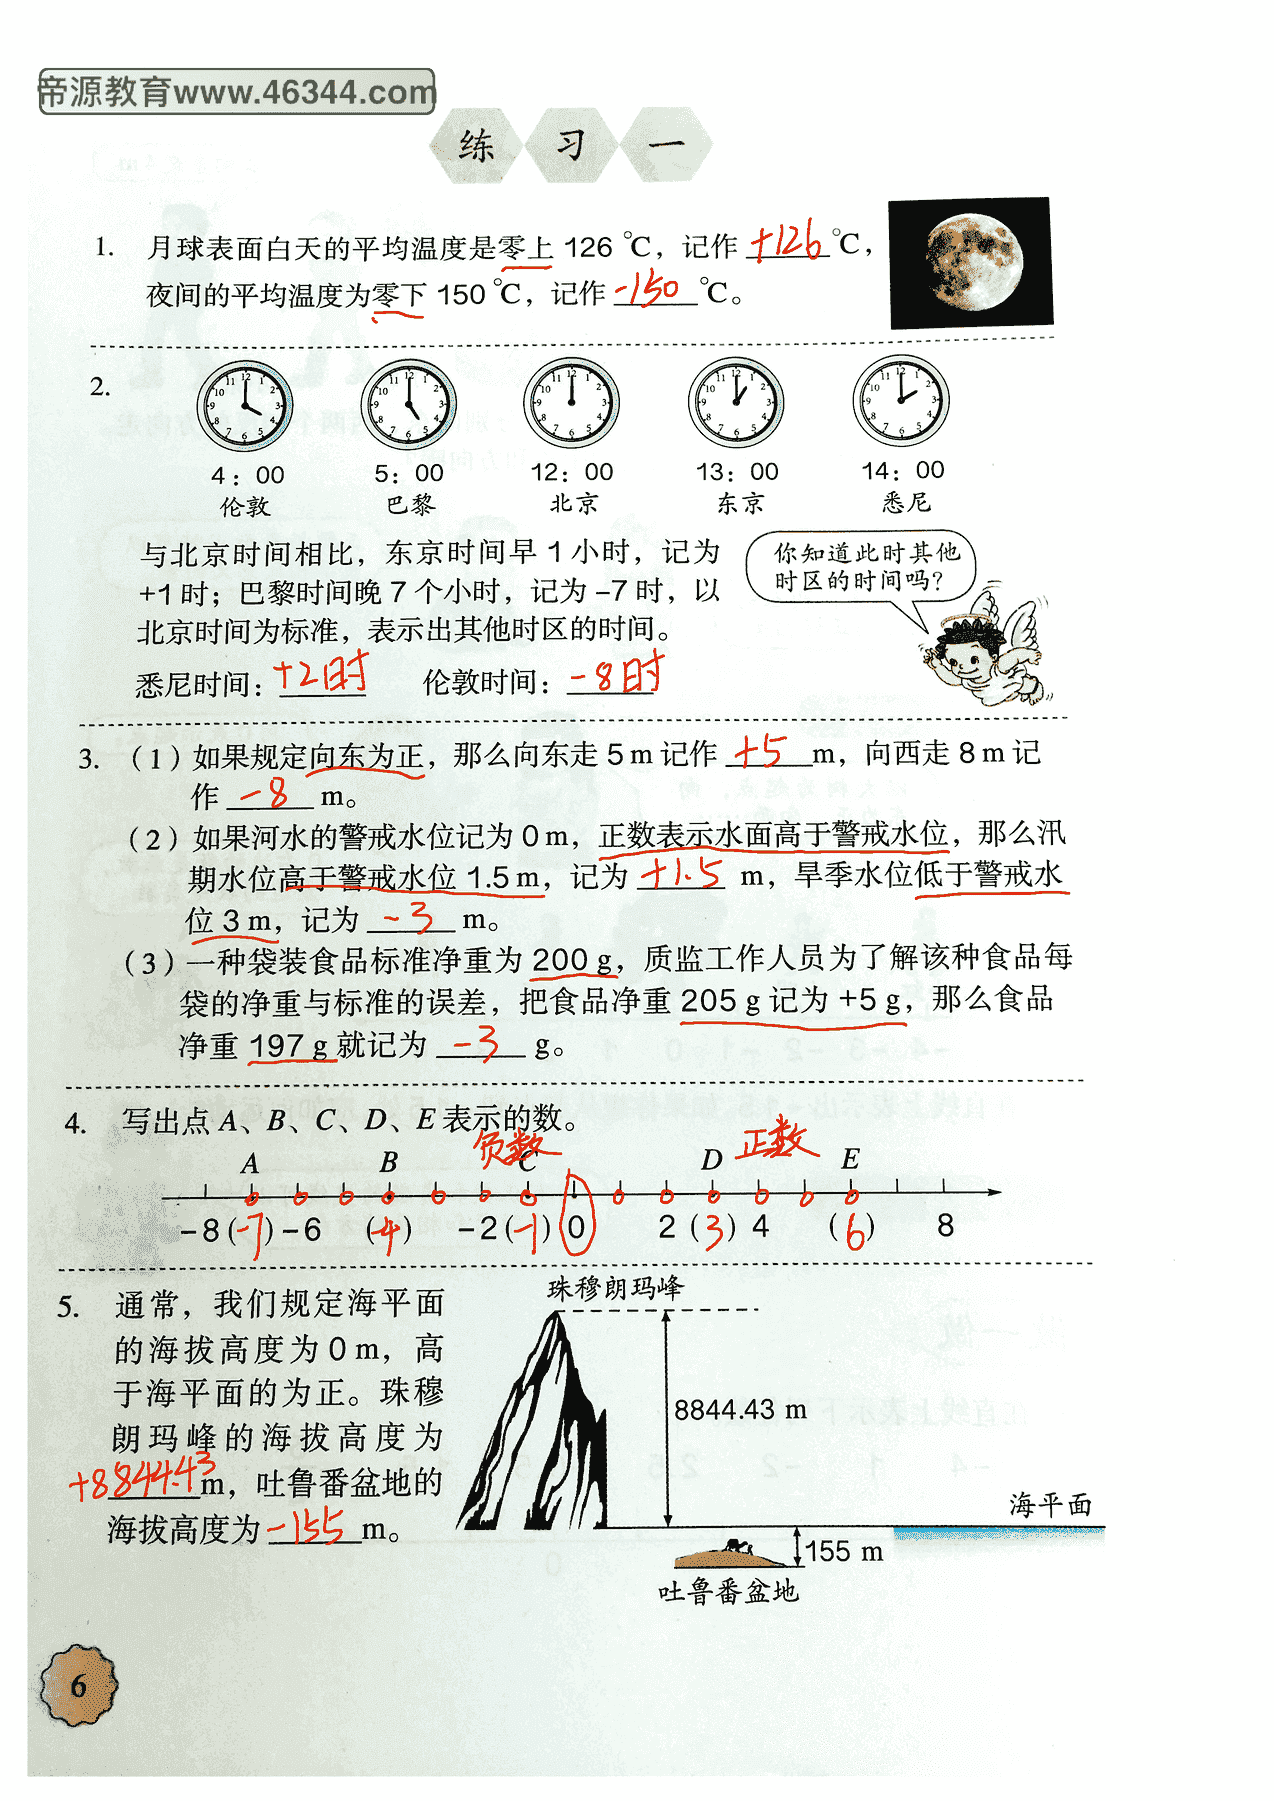 帝源教育www.46344.com
练习一
1. 月球表面白天的平均温度是零上 126 ℃，记作 +126 ℃，
夜间的平均温度为零下 150 ℃，记作 -150 ℃。
2.
4：00 5：00 12：00 13：00 14：00
伦敦 巴黎 北京 东京 悉尼
与北京时间相比，东京时间早 1 小时，记为
+1 时；巴黎时间晚 7 个小时，记为 -7 时，以
北京时间为标准，表示出其他时区的时间。
悉尼时间：+2时 伦敦时间：-8时
你知道此时其他
时区的时间吗？
3.（1）如果规定向东为正，那么向东走 5 m 记作 +5 m，向西走 8 m 记
作 -8 m。
（2）如果河水的警戒水位记为 0 m，正数表示水面高于警戒水位，那么汛
期水位高于警戒水位 1.5 m，记为 +1.5 m，旱季水位低于警戒水
位 3 m，记为 -3 m。
（3）一种袋装食品标准净重为 200 g，质监工作人员为了解该种食品每
袋的净重与标准的误差，把食品净重 205 g 记为 +5 g，那么食品
净重 197 g 就记为 -3 g。
4. 写出点 A、B、C、D、E 表示的数。
负数 正数
A B C D E
-8 (-7) -6 (-4) -2 (-1) 0 2 (3) 4 (6) 8
5. 通常，我们规定海平面
的海拔高度为 0 m，高
于海平面的为正。珠穆
朗玛峰的海拔高度为
+8844.43 m，吐鲁番盆地的
海拔高度为 -155 m。
珠穆朗玛峰
8844.43 m
海平面
155 m
吐鲁番盆地
6